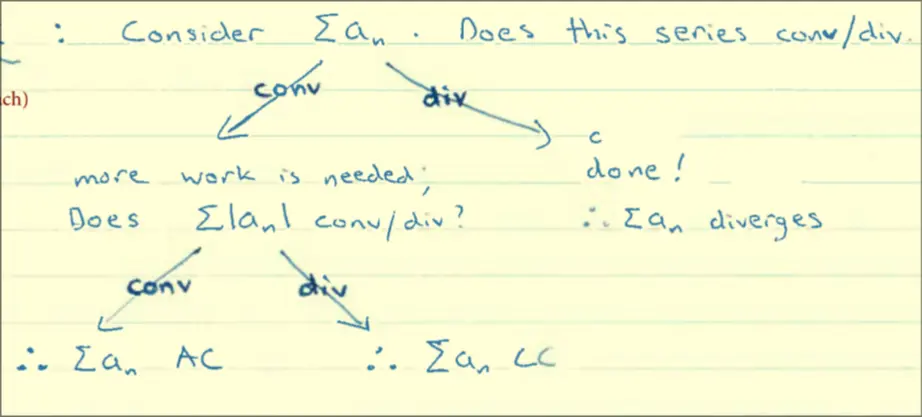 : Consider Σaₙ. Does this series conv/div.
ach)
conv div
c
more work is needed; done!
Does Σ|aₙ| conv/div? ∴ Σaₙ diverges
conv div
∴ Σaₙ AC ∴ Σaₙ CC